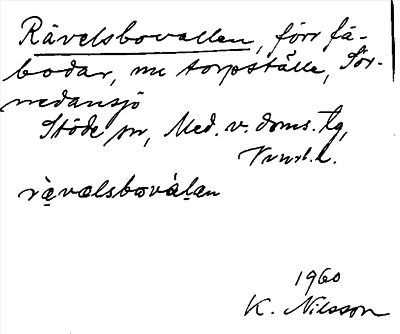 Rävelsbovallen, förr fä-
bodar, nu torpställe, Sör-
nedansjö
Stöde sn, Med. v. doms. tg,
Vnrl. l.
rä̀vælsbovàḷan
1960
K. Nilsson